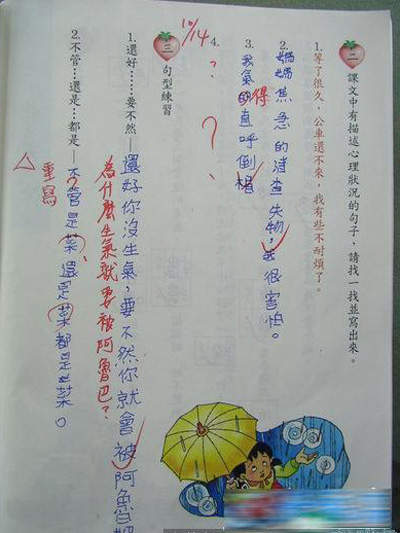 二
課文中有描述心理狀況的句子，請找一找並寫出來。
1.等了很久，公車還不來，我有些不耐煩了。
2.媽媽焦急的清查失物，我很害怕。
3.我氣的直呼倒楣
得
4.？
？
10/14
三
句型練習
1.還好……要不然—還好你沒生氣，要不然你就會被阿魯巴
為什麼生氣就要被阿魯巴？
2.不管…還是…都是—不管是菜還是菜都是菜。
？
△重寫